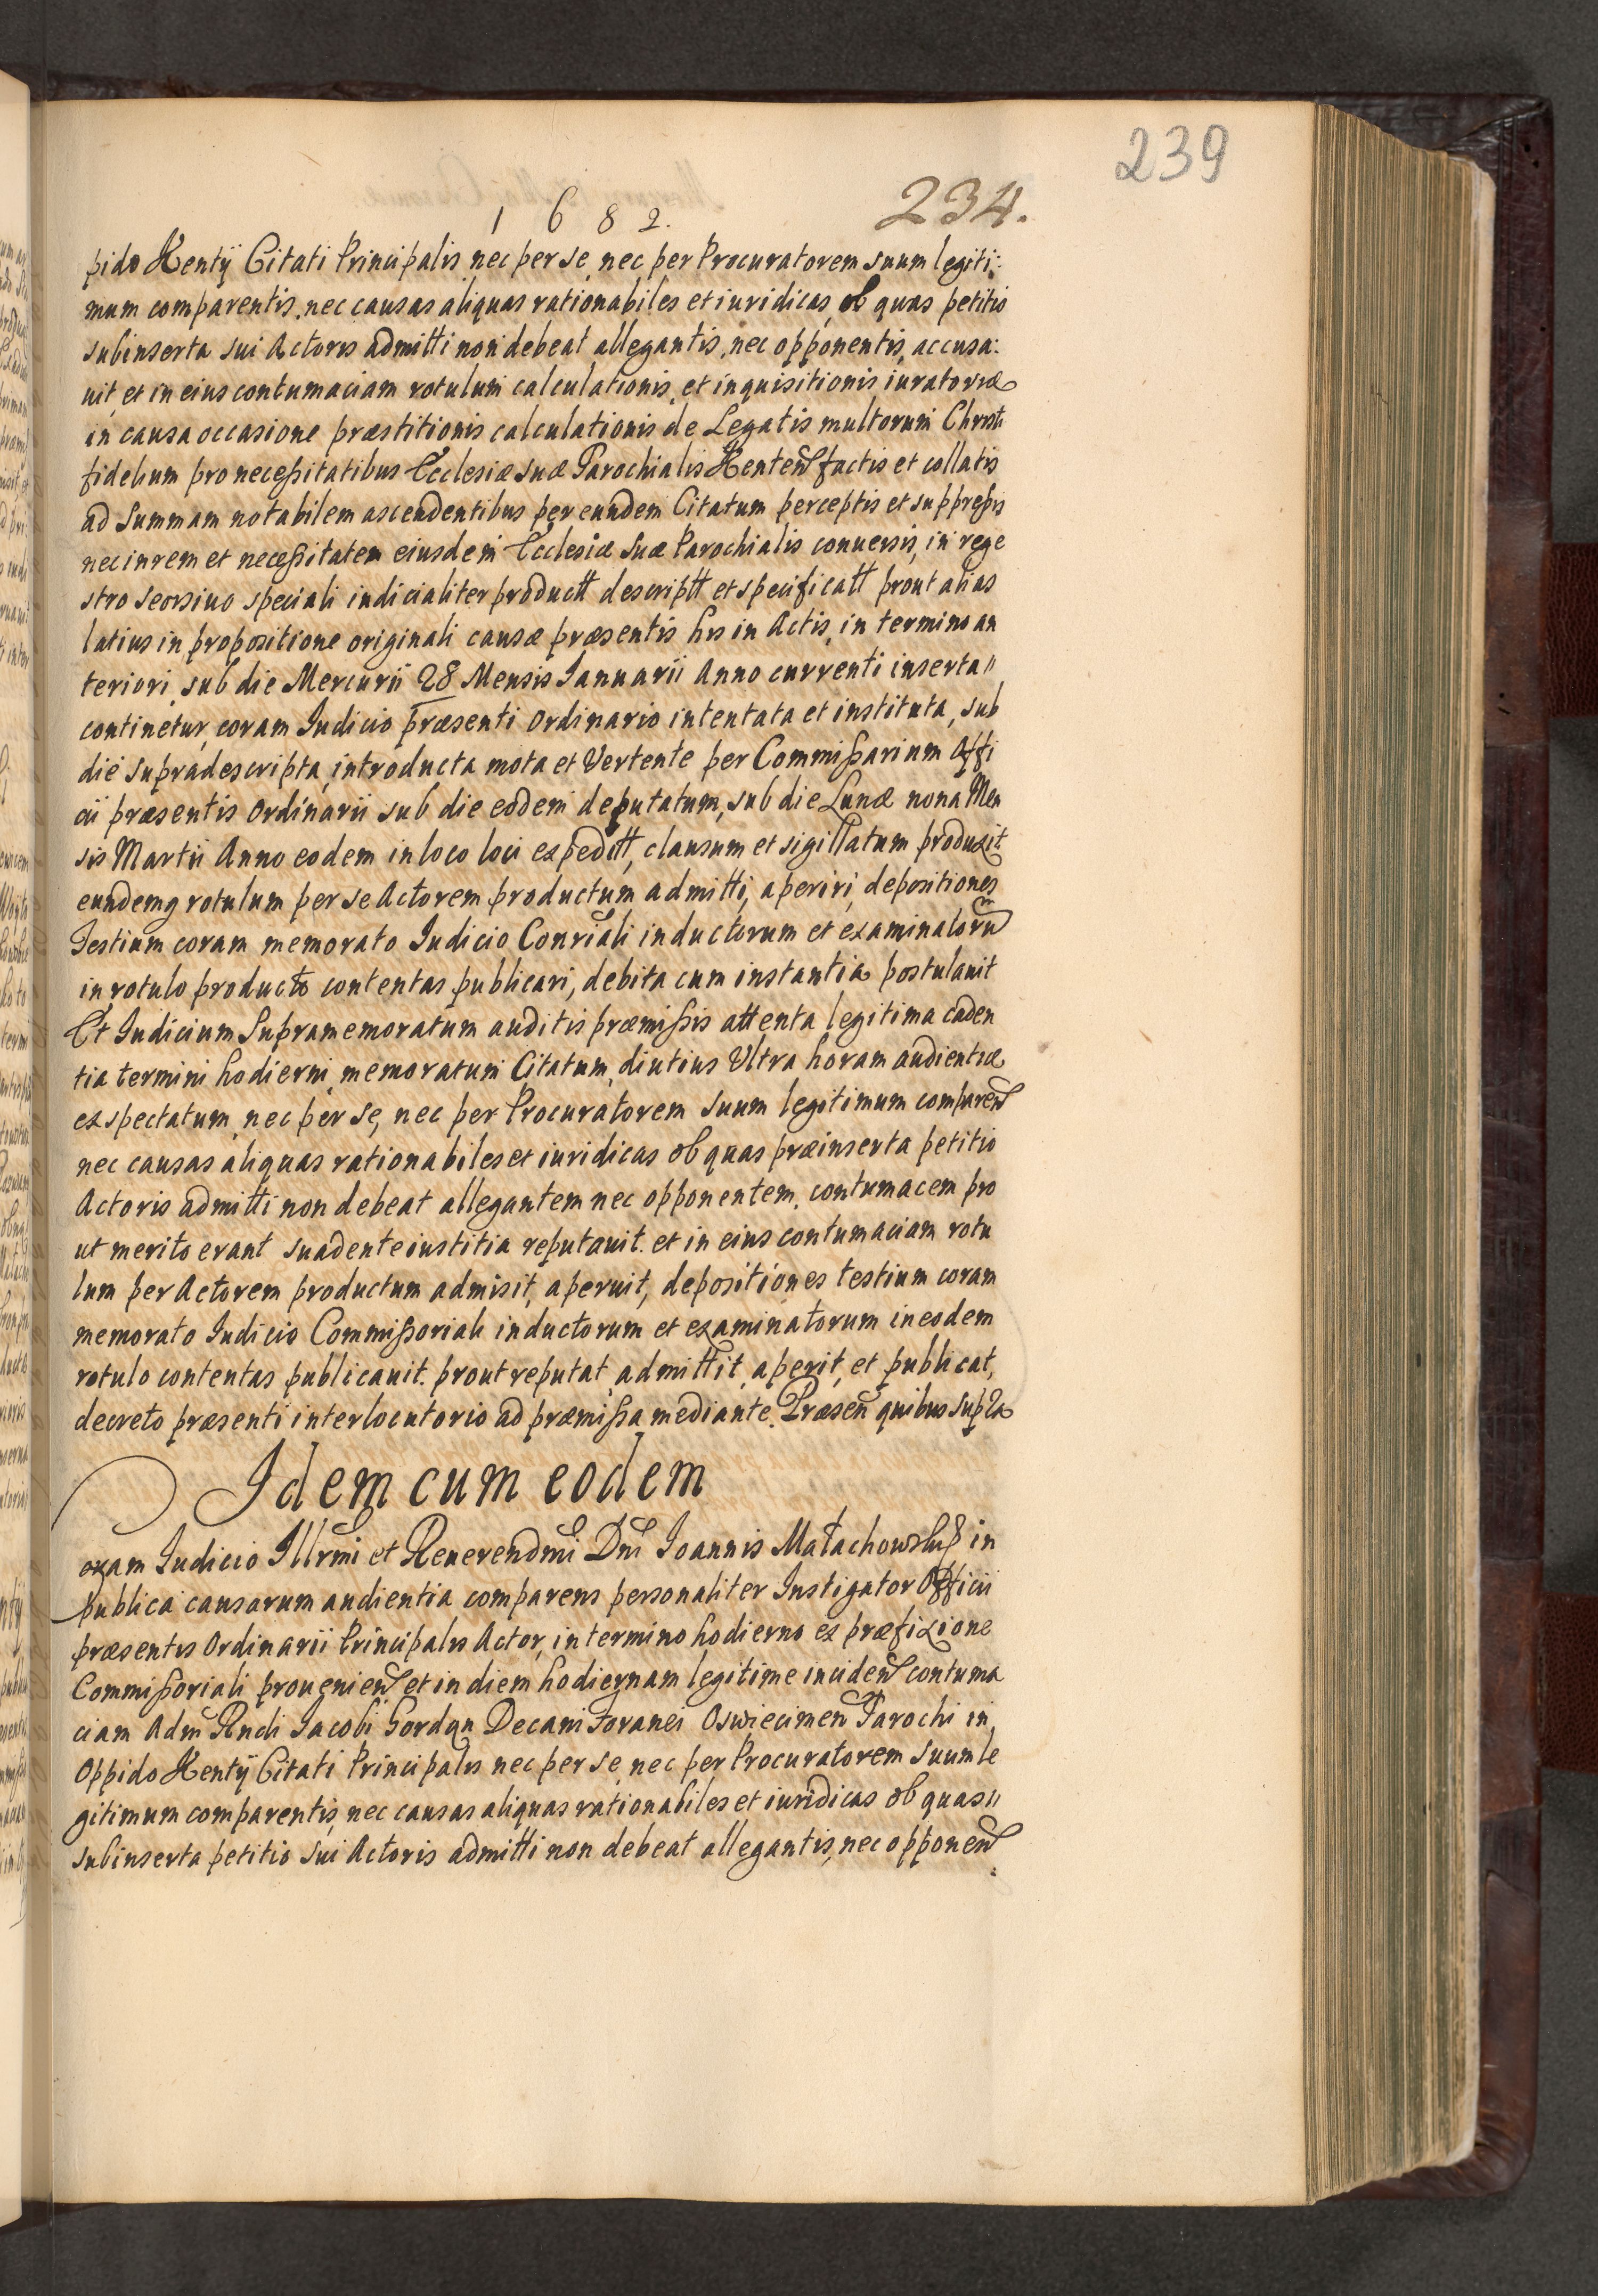 239
234.
1682.
pido Kentÿ Citati Principalis nec per se, nec per Procuratorem suum legiti:
mum comparentis, nec causas aliquas rationabiles et iuridicas, ob quas petitio
subinserta sui Actoris admitti non debeat allegantis, nec opponentis, accusa:
uit, et in eius contumaciam rotulum calculationis, et inquisitionis iuratoriæ
in causa occasione præstitionis calculationis de Legatis multorum Christi
fidelium pro necessitatibus Ecclesiæ suæ Parochialis Kenten factis et collatis
ad summam notabilem ascendentibus per eundem Citatum perceptis et suppressis
nec in rem et necessitatem eiusdem Ecclesiæ suæ Parochialis conuersis, in rege
stro seorsiuo speciali iudicialiter productt descriptt et specificatt prout alias
latius in propositione originali causæ præsentis his in Actis, in termino an
teriori, sub die Mercurii 28 Mensis Ianuarii Anno currenti inserta
continetur, coram Iudicio præsenti ordinario intentata et instituta, sub
die supradescripta, introducta mota et Vertente per Commissarium Offi
cii præsentis ordinarii sub die eodem deputatum, sub die Lunæ nona Men
sis Martii Anno eodem in loco loci expeditt, clausum et sigillatum produxit
eundemq rotulum per se Actorem productum admitti, aperiri, depositiones
Testium coram memorato Iudicio Conriali inductorum et examinatorum
in rotulo producto contentas publicari, debita cum instantia postulauit
Et Iudicium supramemoratum auditis præmissis attenta legitima caden
tia termini hodierni, memoratum Citatum, diutius Ultra horam audientiæ
exspectatum, nec per se, nec per Procuratorem suum legitimum comparen
nec causas aliquas rationabiles et iuridicas ob quas præinserta petitio
Actoris admitti non debeat allegantem nec opponentem, contumacem pro
ut merito erant suadente iustitia reputauit. et in eius contumaciam rotu
lum per Actorem productum admisit, aperuit, depositiones testium coram
memorato Iudicio Commissoriali inductorum et examinatorum in eodem
rotulo contentas publicauit. prout reputat, admittit, aperit, et publicat,
decreto præsenti interlocutorio ad præmissa mediante. Præsen quibus supra
Idem cum eodem
coram Iudicio Illrmi et Reuerendmi Dni Ioannis Małachowski in
publica causarum audientia comparens personaliter Instigator Officii
præsentis Ordinarii Principalis Actor, in termino hodierno ex præfixione
Commissoriali prouenien et in diem hodiernam legitime inciden contuma
ciam Adm Rndi Iacobi Gordon Decani Foranei Oswiecimen Parochi in
Oppido Kentÿ Citati Principalis nec per se, nec per Procuratorem suum le
gitimum comparentis, nec causas aliquas rationabiles et iuridicas ob quas
subinserta petitio sui Actoris admitti non debeat allegantis, nec opponen